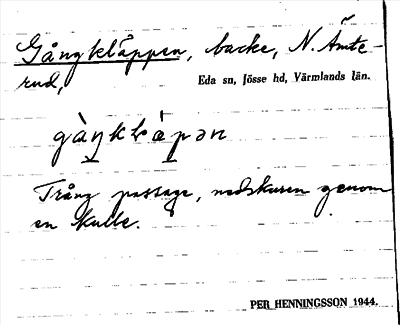 Gångkläppen, backe, N. Ämte-
rud, Eda sn, Jösse hd, Värmlands län.
Trång passage, nedskuren genom
en kulle.
PER HENNINGSSON 1944.